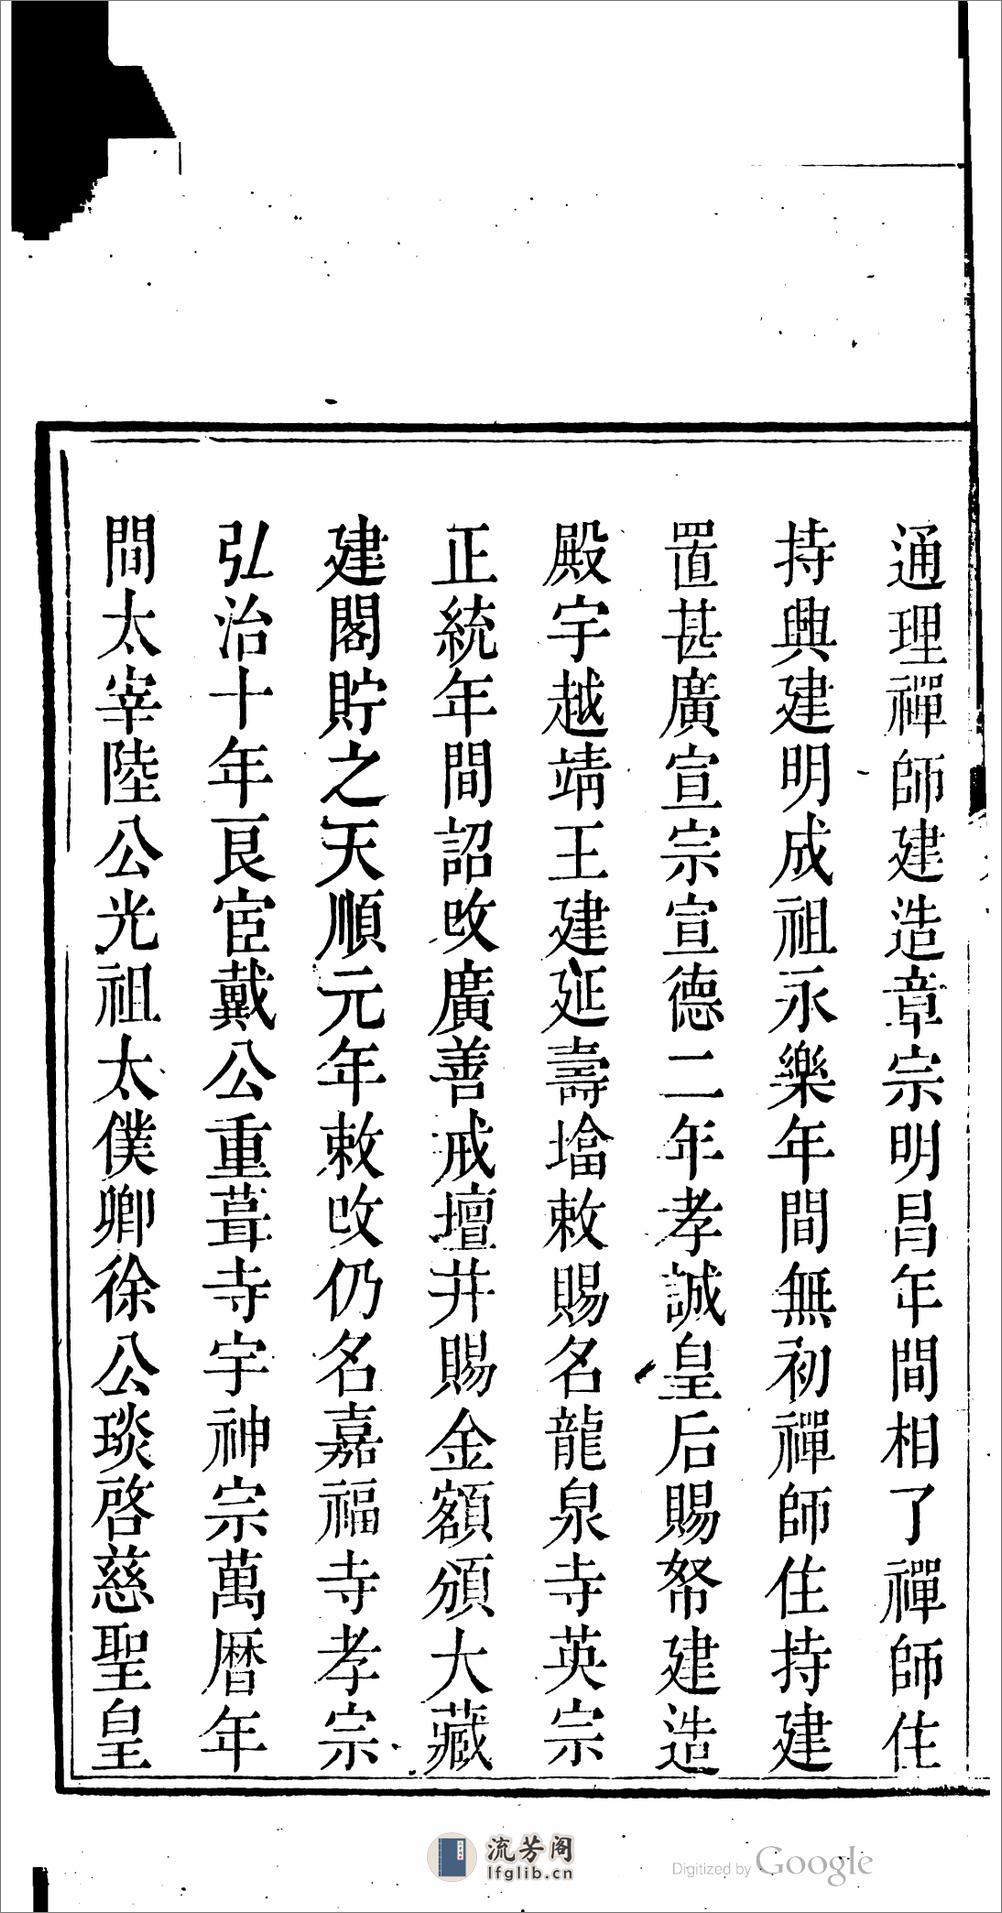 通理禪師建造章宗明昌年間相了禪師住
持興建明成祖永樂年間無初禪師住持建
置甚廣宣宗宣德二年孝誠皇后賜帑建造
殿宇越靖王建延壽墖敕賜名龍泉寺英宗
正統年間詔改廣善戒壇并賜金額頒大藏
建閣貯之天順元年敕改仍名嘉福寺孝宗
弘治十年艮宦戴公重葺寺宇神宗萬曆年
間太宰陸公光祖太僕卿徐公琰啓慈聖皇
流芳阁
lfglib.cn
Digitized by Google